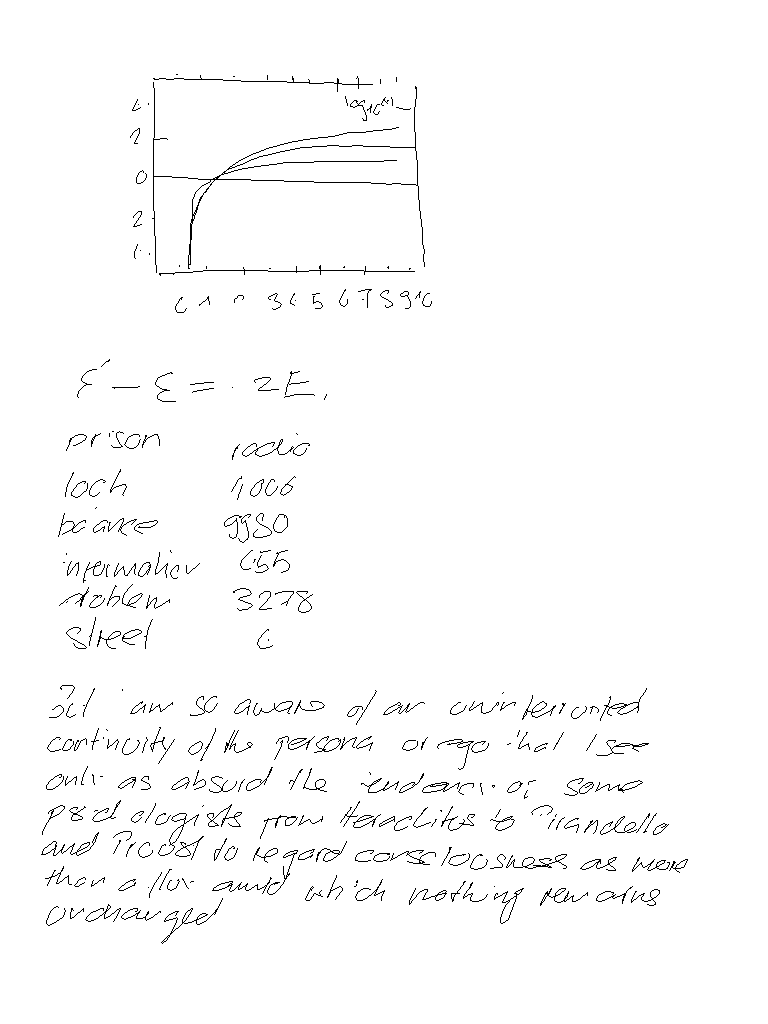 4
2
0
2
4
log10(x)
0 1 2 3 4 5 6 7 8 9 10
E' - E = 2E,
prison radio
loch 1006
balance 9980
information 655
problem 3278
street 6
But I am so aware of an uninterrupted
continuity of the persona or ego that I see
only as absurd the tendency of some
psychologists from Heraclites to Pirandello
and Proust to regard consciousness as more
than a flux amid which nothing remains
unchanged